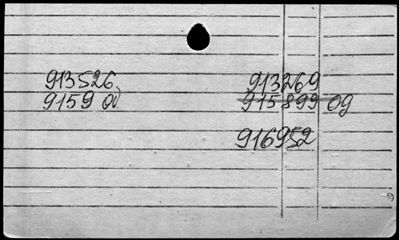 913526 913269
9159 915899 09
916952